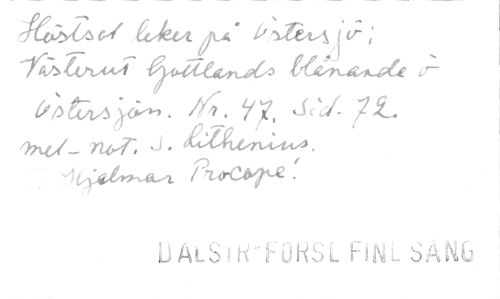 Höstsol leker på Östersjö;
Västerut Gottlands blånande ö
Östersjön. Nr. 47, Sid. 72.
mel-not. S. Lithenius.
Hjalmar Procopé.
DALSTR-FORSL FINL SÅNG